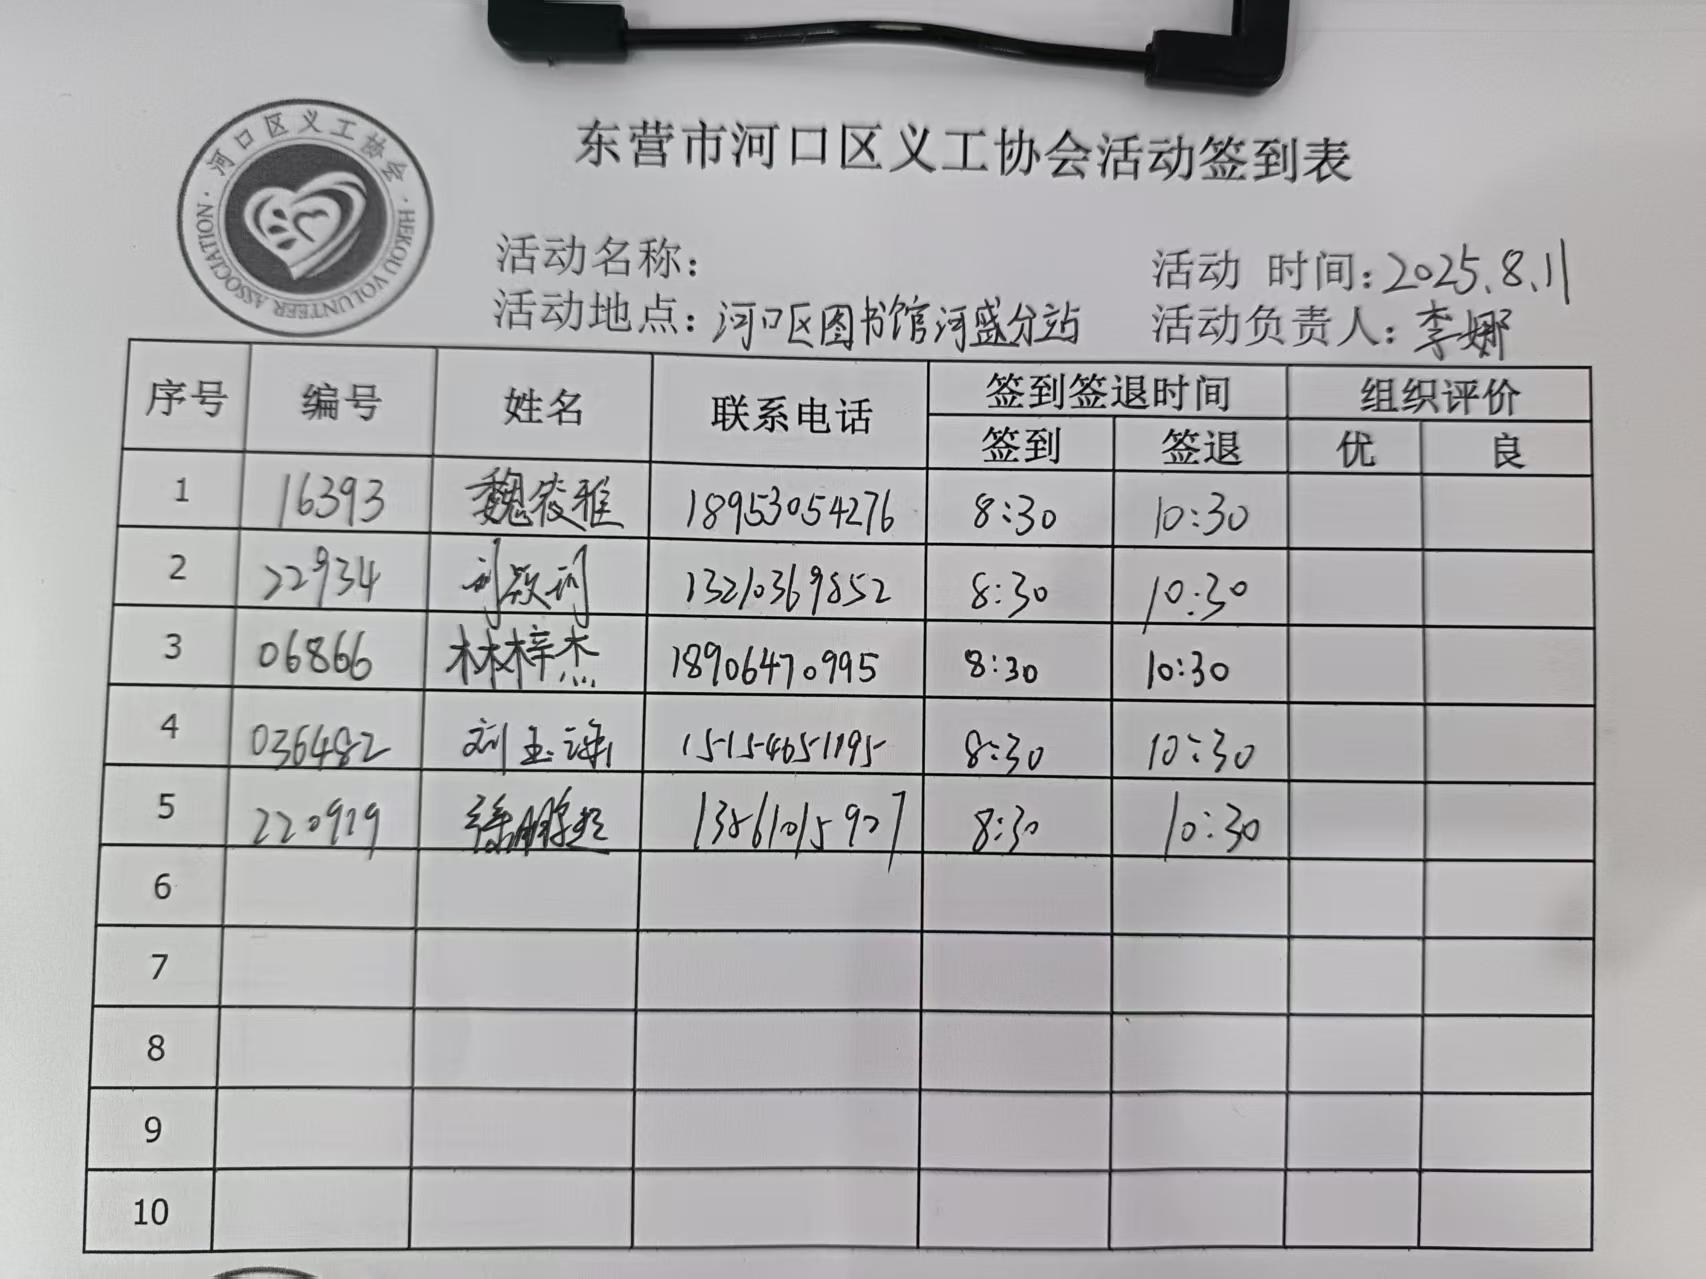 河口区义工协会
HEKOU VOLUNTEER ASSOCIATION
东营市河口区义工协会活动签到表
活动名称：
活动 时间：2025.8.11
活动地点：河口区图书馆河盛分站
活动负责人：李娜
序号 编号 姓名 联系电话 签到签退时间 组织评价
签到 签退 优 良
1 16393 魏筱雅 18953054276 8:30 10:30
2 22934 13210369852 8:30 10:30
3 06866 林梓杰 18906470995 8:30 10:30
4 036482 刘玉 15154651195 8:30 10:30
5 220919 徐鹏 13861015927 8:30 10:30
6
7
8
9
10